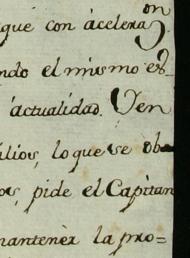 que con acelera^on
ndo el mismo es-
actualidad. Y en
ilios, lo que se ob-
os, pide el Capitan
mantener la pro=